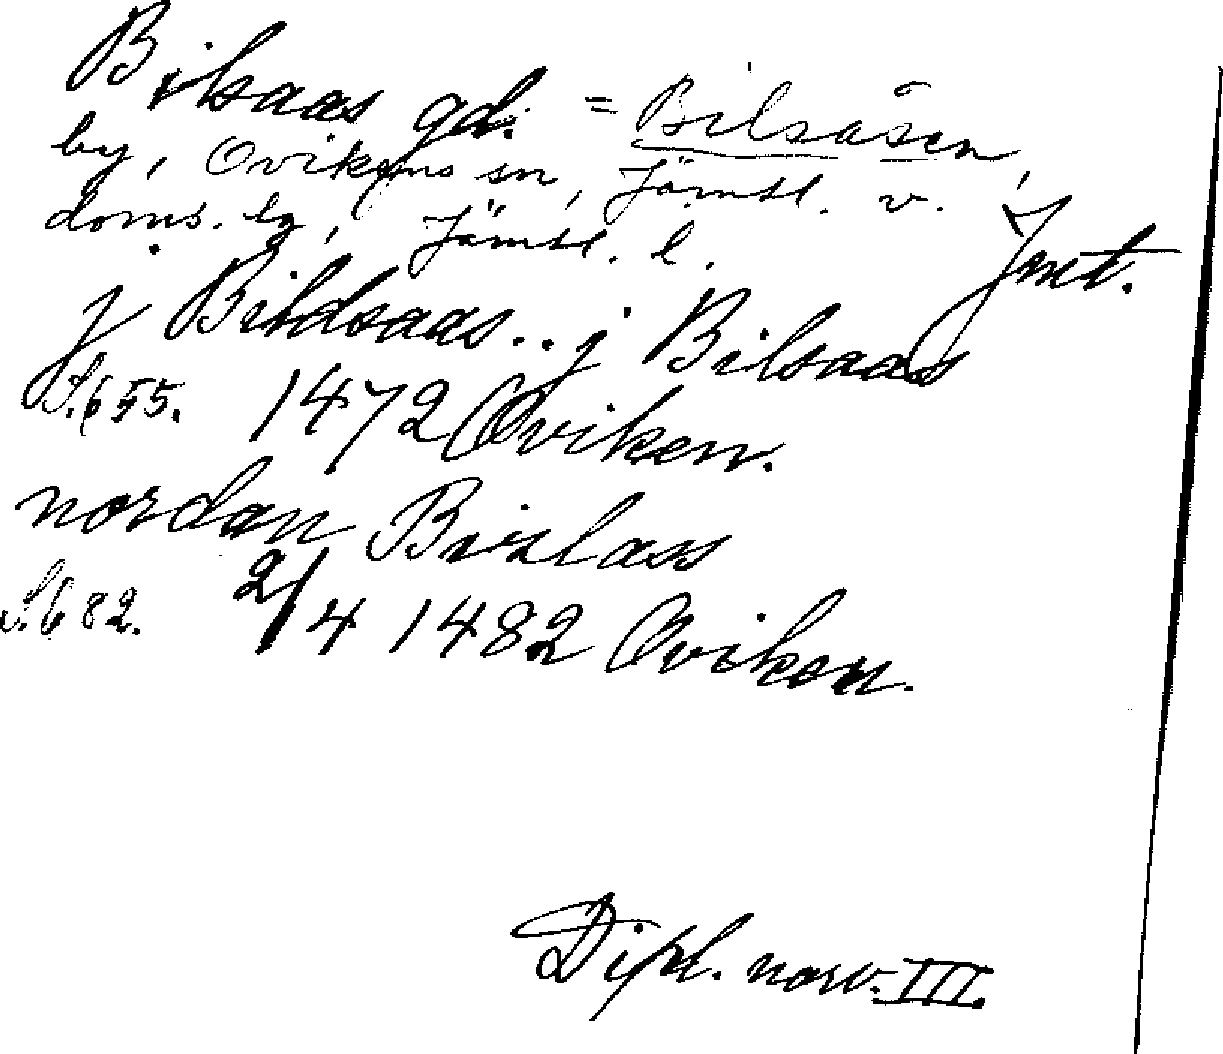 Bilsaas gd. = Bilsåsen,
by, Ovikens sn, Jämtl. v.
doms. lg, Jämtl. l.
Jmt.
j Bildsaas.. j Bilsaas
S. 655. 1472 Oviken.
nordan Birslass
S. 682. 2/4 1482 Oviken.
Dipl. norv. III.